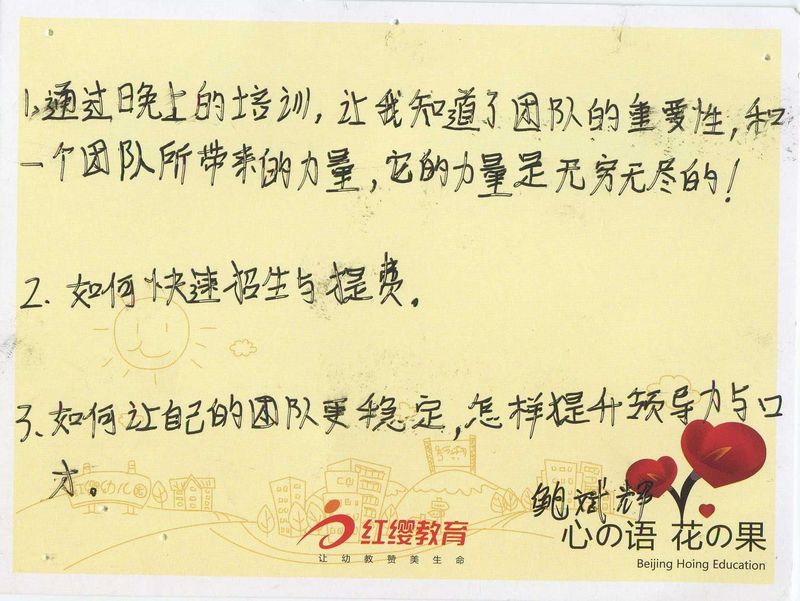 1、通过晚上的培训,让我知道了团队的重要性,和
一个团队所带来的力量,它的力量是无穷无尽的!
2、如何快速招生与提费。
3、如何让自己的团队更稳定,怎样提升领导力与口
才。
鲍斌辉
红缨教育
让幼教赞美生命
心の语 花の果
Beijing Hoing Education